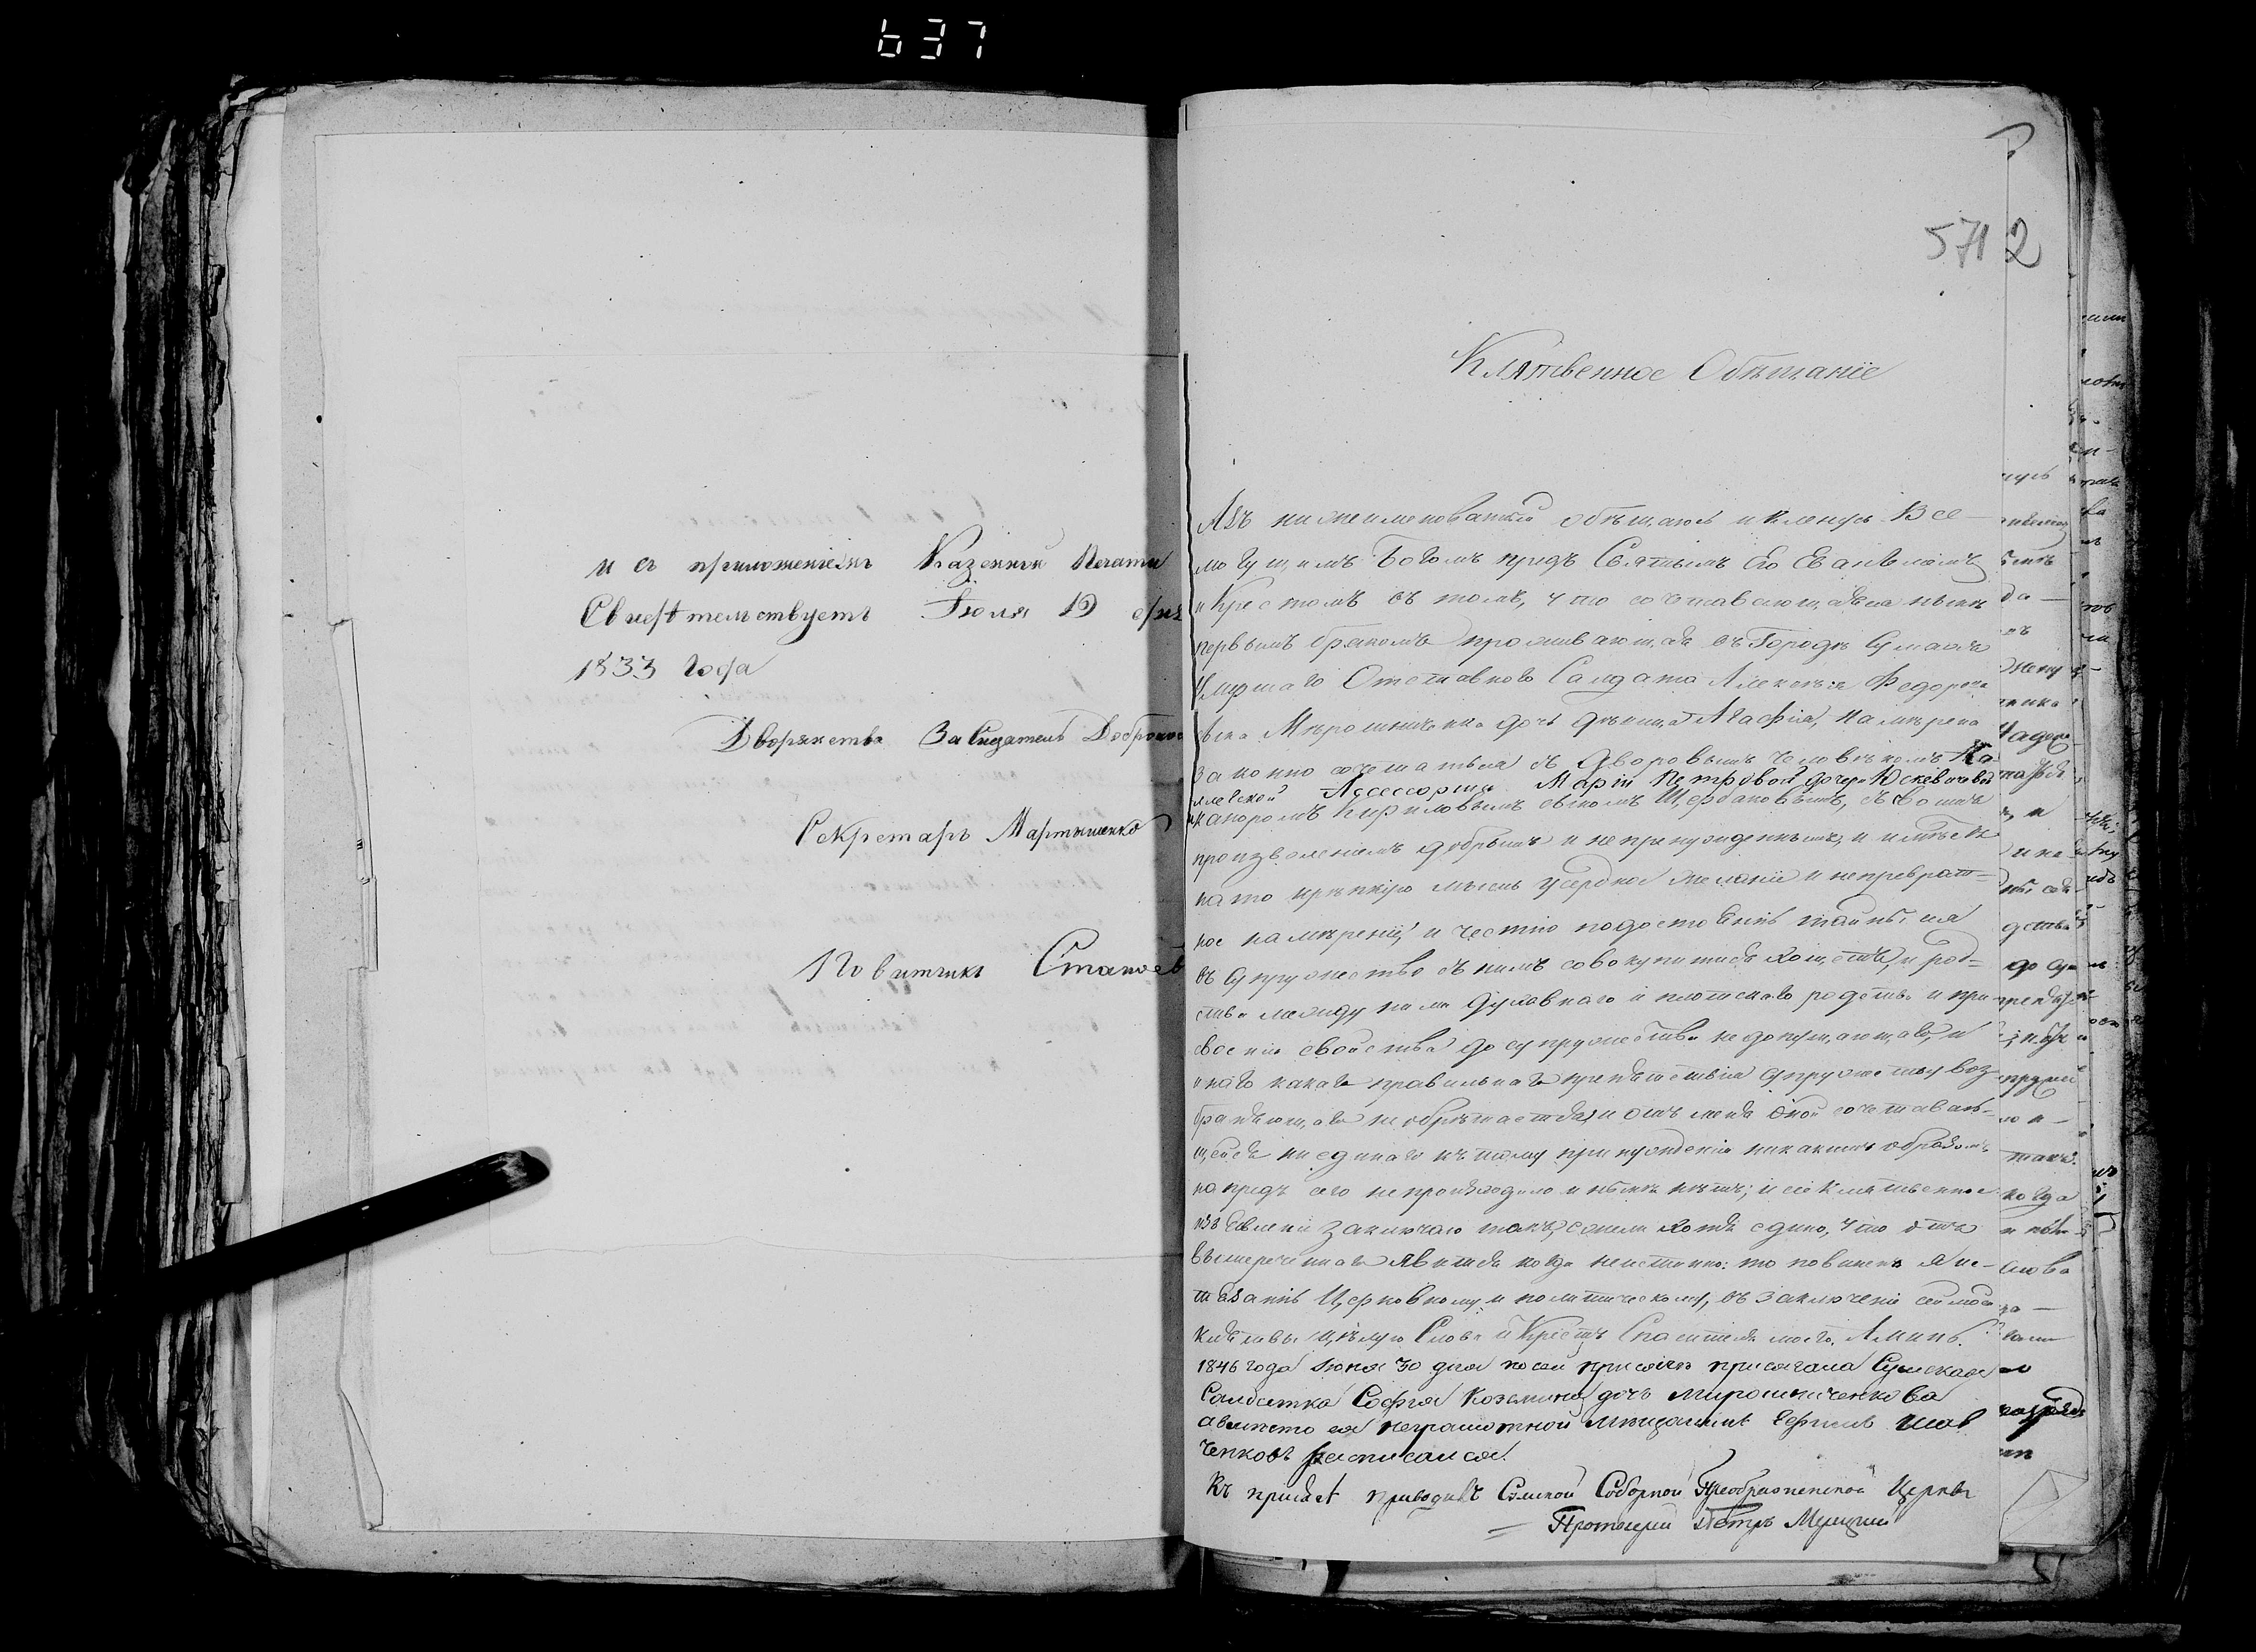 637
и съ приложеніемъ Казенной Печати
Свидетельствуетъ Іюля 19 дня
1833 года
Дворянства Заседатель Доброно
Секретарь Мартыненко
Повитчикъ Станов
571 2
Клятвенное Обѣщаніе
Азъ нижеименованный обѣщаюсь и кленусь Все-
могущимъ Богомъ предъ Святымъ Его Евангелиемъ
и Крестомъ въ томъ, что сочетавающаяся нынѣ
первымъ бракомъ проживающая въ Городѣ Сумахъ
Умершаго Отставного Салдата Алексѣя Федорова
сына Мирошниченка дочь дѣвица Агафія, намѣрена
законно сочетаться съ Дворовымъ Человѣкомъ Ко-
лежской Ассесорши Маріи Петровой дочери Юскевичевой
Никаноромъ Кириловымъ сыномъ Щербаковымъ, съ
произволеніемъ добрымъ и непринужденнымъ, и имѣетъ
на то крѣпкую мысль усердное желаніе и неприврат-
ное намѣреніе, и честно по достоянію тайны сея
въ супружество съ нимъ совокупитися хощетъ, и род-
ства между ними духовнаго и плотскаго родства и при-
своенія свойства до супружества недопущающаго, и
инаго какаго правильнаго препятствія супружеству воз-
браняющаго не обрѣтается, и отъ меня оной сочетаваю-
щейся ни единаго къ тому принужденія никакимъ образомъ
напредь сего непроизходило и нынѣ нѣтъ; и сіе клятвенное
изъявленіе заключаю такъ, если хотя едино, что отъ
вышереченнаго явится когда неистинно: то повиненъ я ис-
тязанію Церковному и политическому, въ заключеніе сей моей
клятвы цѣлую Слова и Крестъ Спасителя моего. Аминь.
1846 года Іюня 30 дня по сей присягѣ присягала Сумская
Салдатка Софія Козмина дочь Мирошниченкова
авместо ея неграмотной мѣщанинъ Ефимъ Шев
ченковъ росписался.
Къ присягѣ приводилъ Сумской Соборной Преображенской Церкви
Протоиерей Петръ